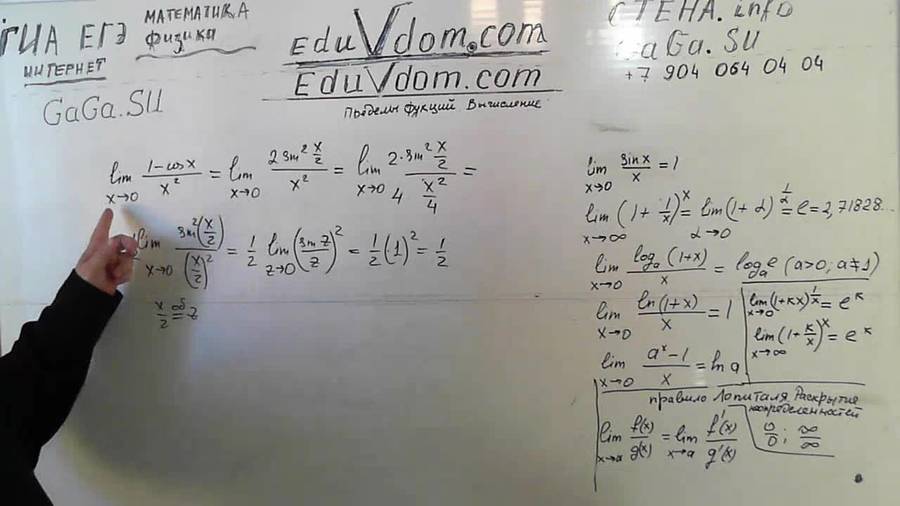 ГИА ЕГЭ
МАТЕМАТИКА
физика
ИНТЕРНЕТ
GaGa.SU
EduVdom.com
EduVdom.com
Пределы функций Вычисление
СТЕНА.info
GaGa.SU
+7 904 064 04 04
lim x→0 (1-cos x)/x² = lim x→0 (2 sin² x/2)/x² = lim x→0 (2·sin² x/2)/(4 x²/4) =
lim x→0 sin²(x/2)/(x/2)² = 1/2 lim z→0 (sin z/z)² = 1/2 (1)² = 1/2
x/2 об= z
lim x→0 sin x/x = 1
lim x→∞ (1+1/x)^x = lim α→0 (1+α)^(1/α) = e = 2,71828...
lim x→0 logₐ(1+x)/x = logₐe (a>0; a≠1)
lim x→0 ln(1+x)/x = 1
lim x→0 (1+кx)^(1/x) = e^к
lim x→∞ (1+к/x)^x = e^к
lim x→0 (aˣ-1)/x = ln a
правило Лопиталя Раскрытие
неопределенностей
lim x→a f(x)/g(x) = lim x→a f'(x)/g'(x)
0/0; ∞/∞